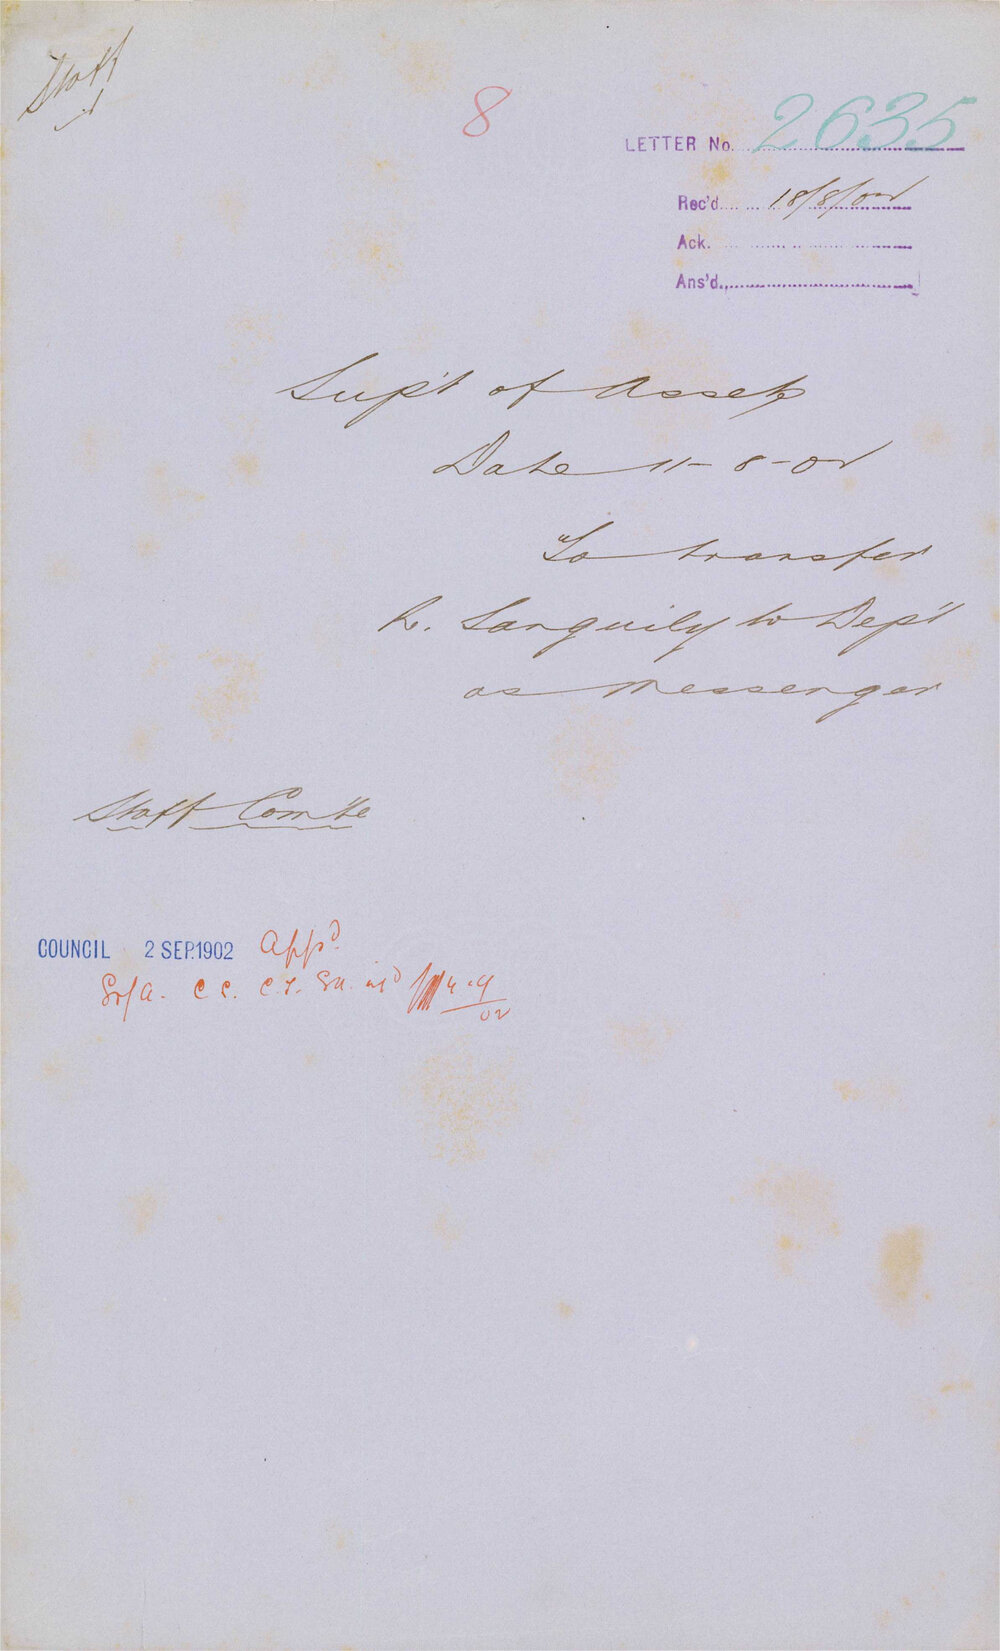 Staff
8
LETTER No. 2635
Rec'd 18/8/02
Ack.
Ans'd.
Sup't of Assets
Date 11-8-02
To transfer
R. Sanguily to Dep't
as Messenger
Staff Com'te
COUNCIL 2 SEP. 1902 Appd.
S of A. C C. C.T. 4.9/02